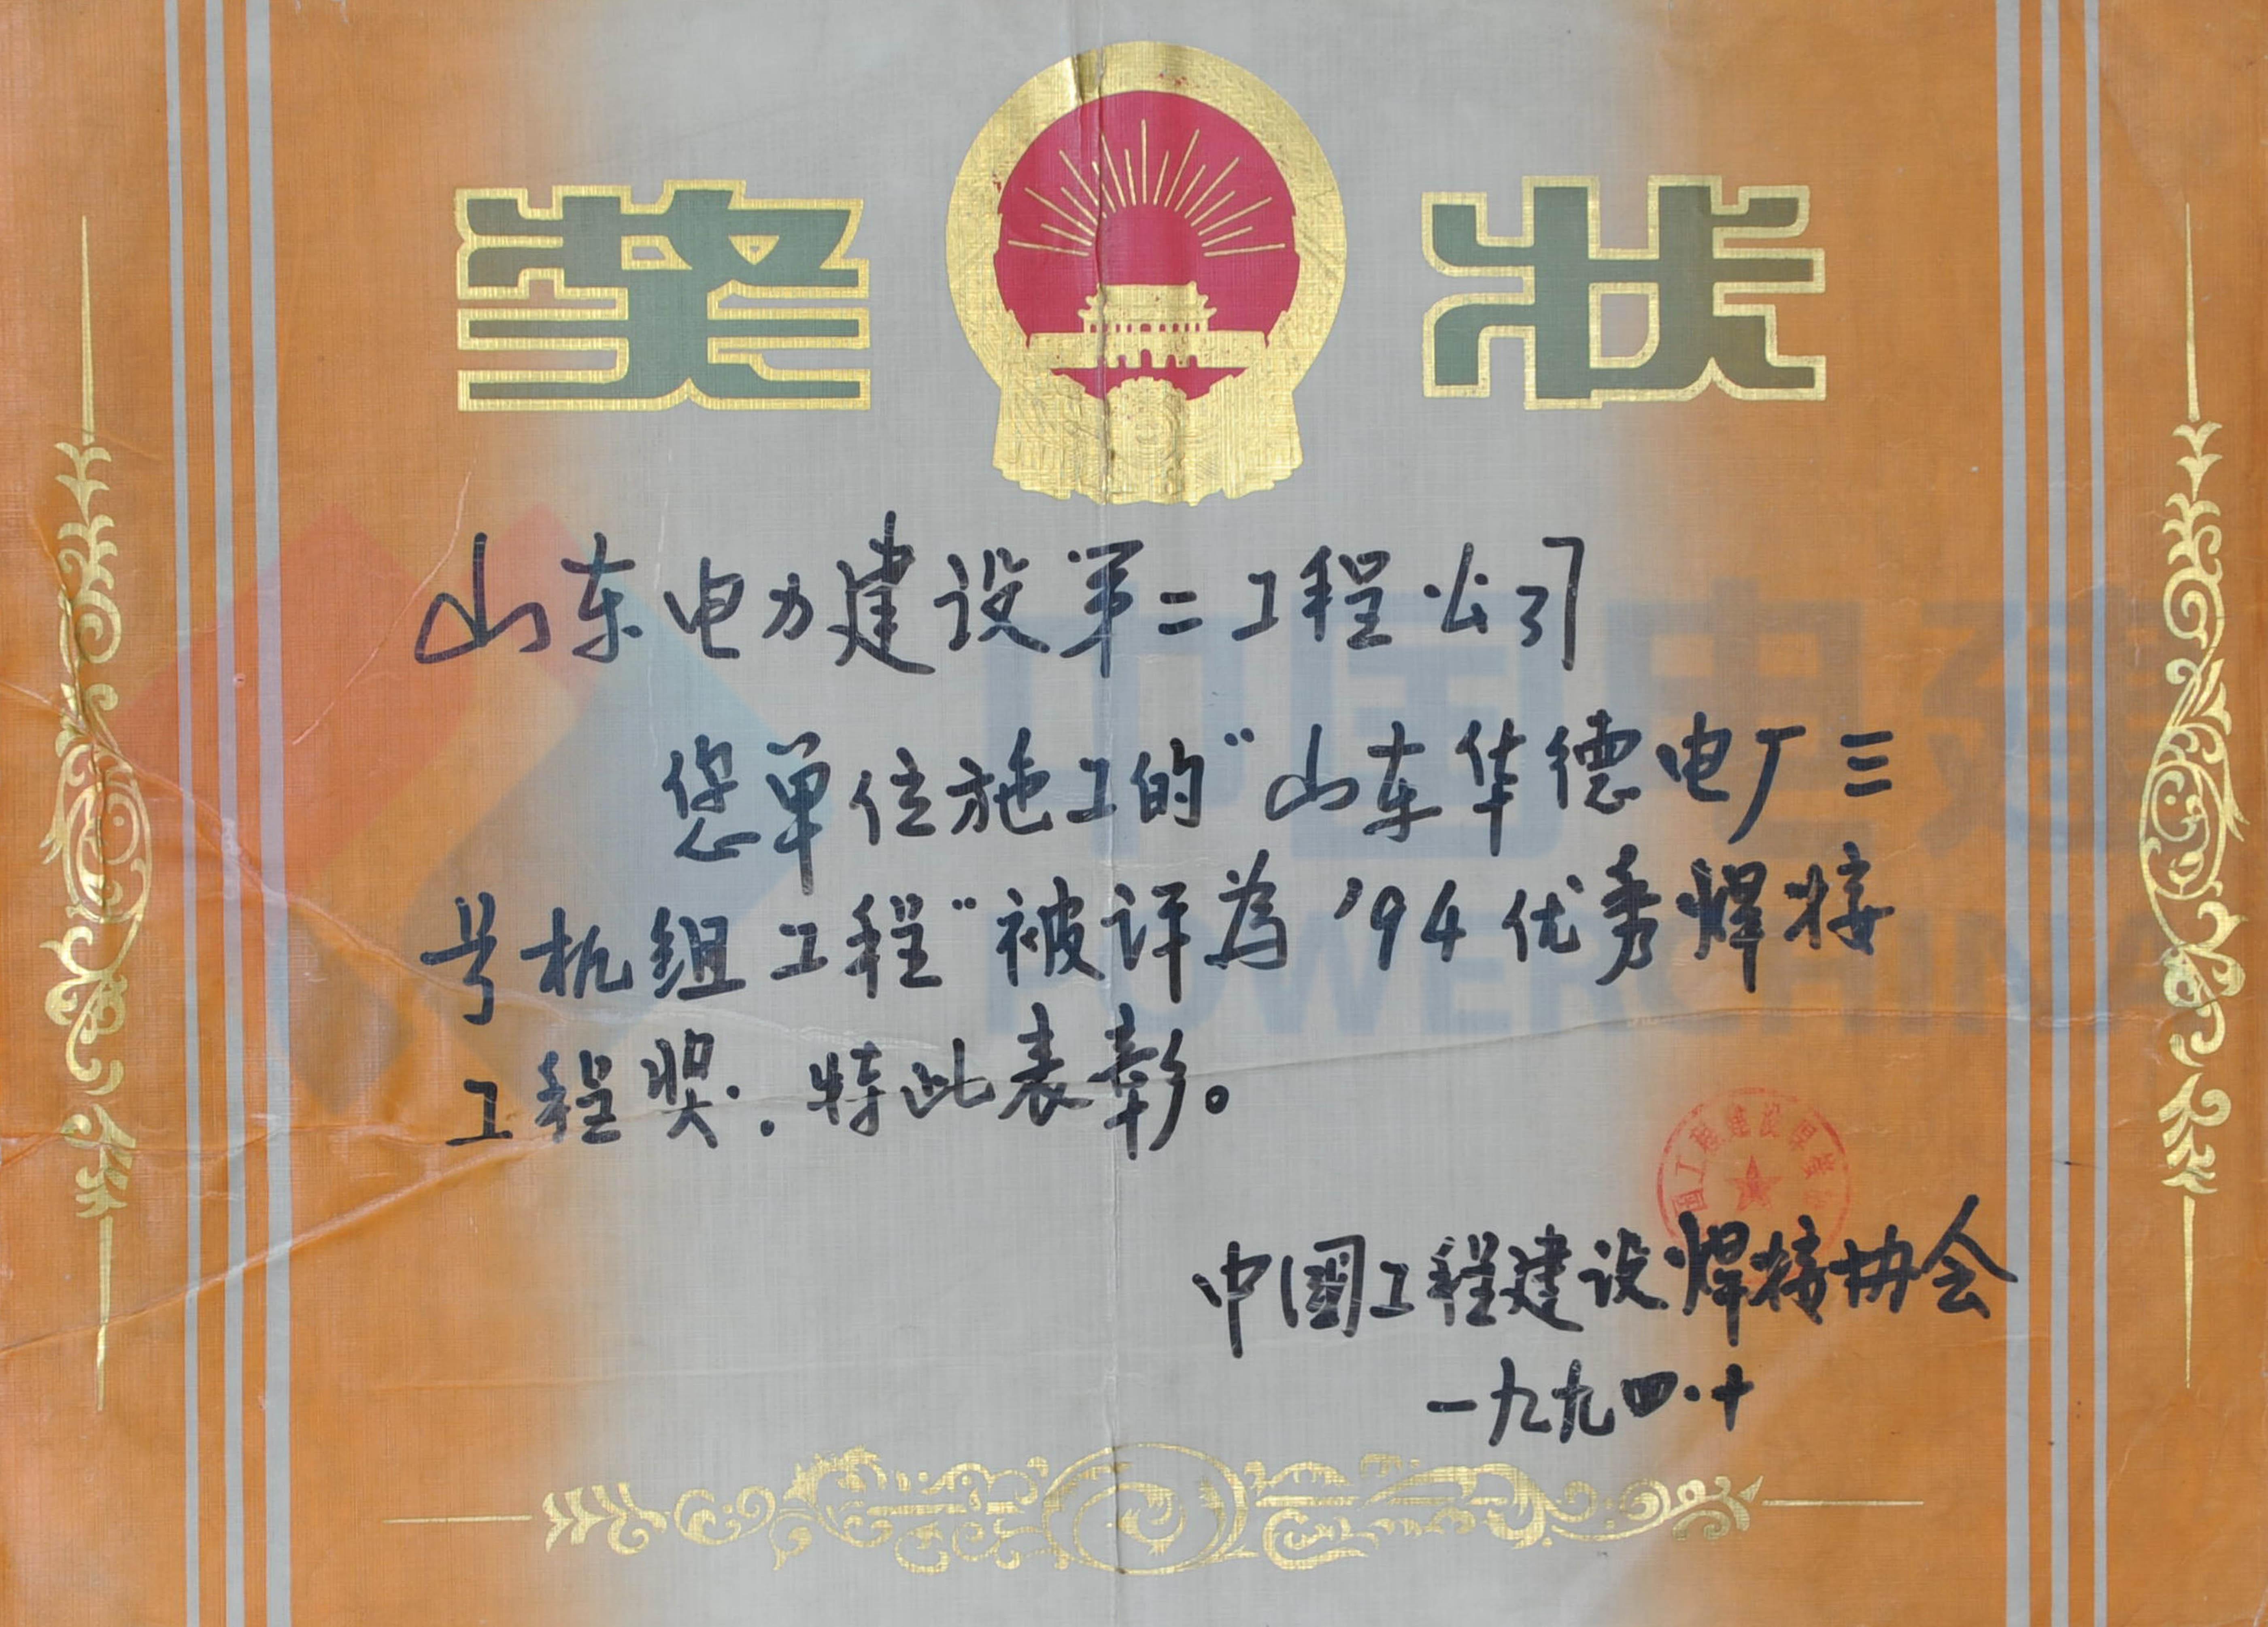 奖状
山东电力建设第二工程公司
您单位施工的"山东华德电厂三
号机组工程"被评为'94优秀焊接
工程奖.特此表彰。
国工程建设焊接
中国工程建设焊接协会
一九九四.十
中国电建
POWERCHINA